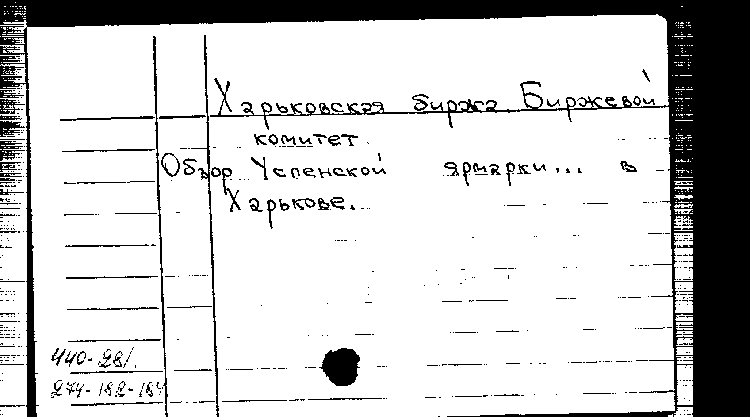 Харьковская биржа Биржевой
комитет.
Обзор Успенской ярмарки... в
Харькове.
440-28/.
274-182-184